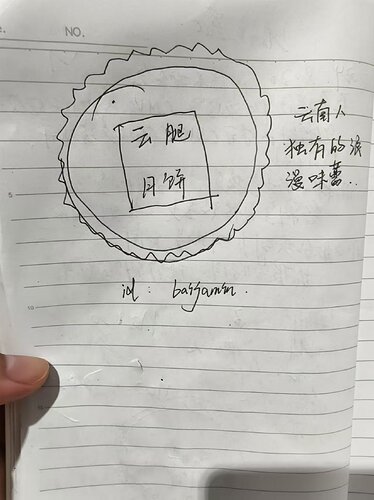 NO.
云腿
月饼
云南人
独有的浪
漫味蕾..
id: